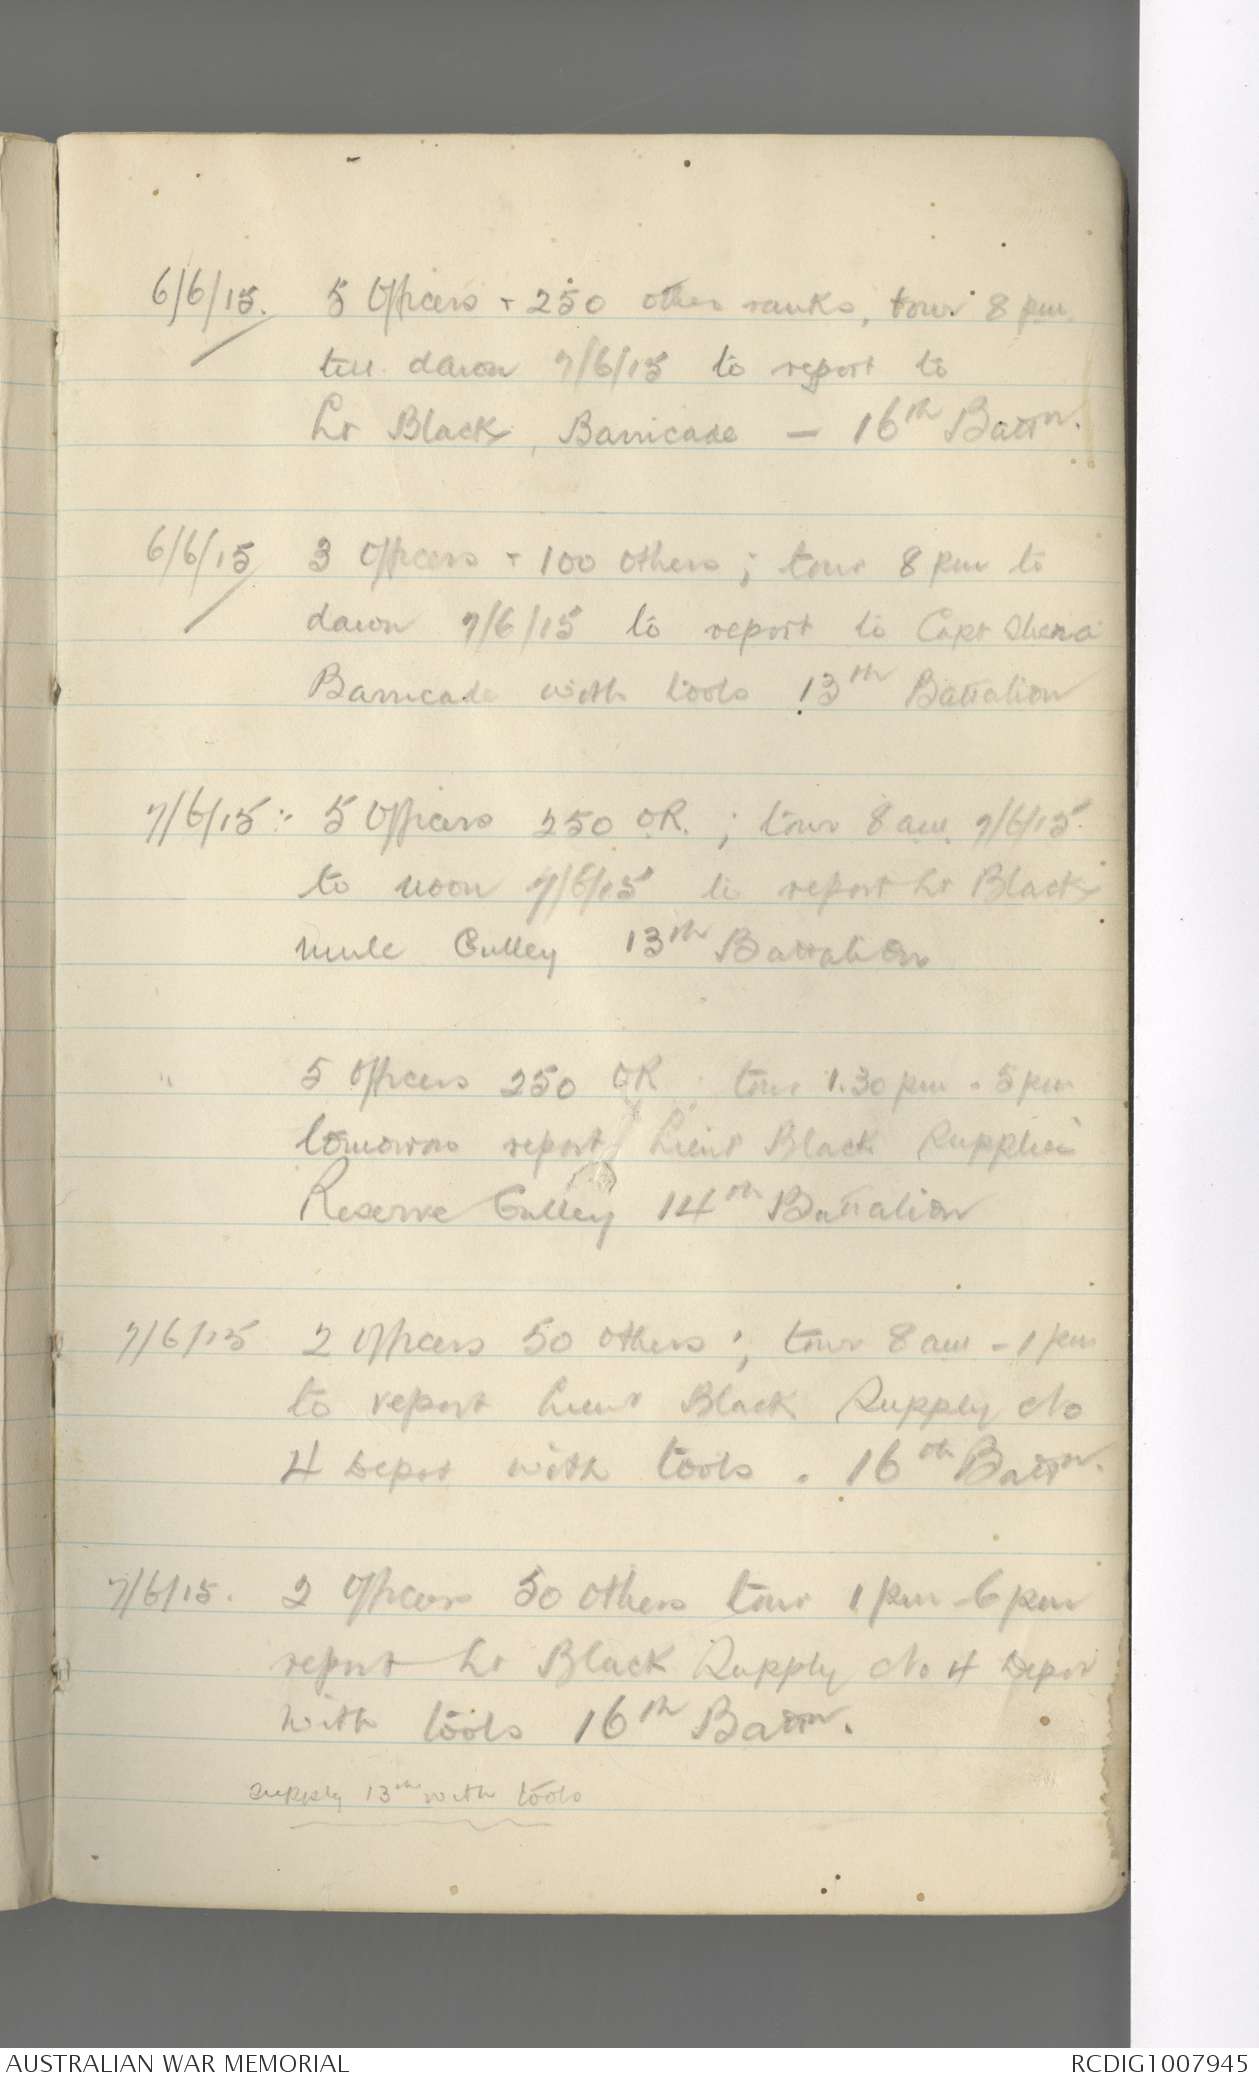 6/6/15. 5 Officers + 250 other ranks, tour 8 pm
till dawn 7/6/15 to report to
Lt Black, Barricade - 16th Battn.
6/6/15 3 Officers + 100 others; tour 8 pm to
dawn 7/6/15 to report to Capt
Barricade with tools 13th Battalion
7/6/15:- 5 Officers 250 OR.; tour 8 am 7/6/15
to noon 7/6/15 to report Lt Black
mule Gulley 13th Battalion
" 5 Officers 250 OR tour 1.30 pm - 5 pm
tomorrow report Lieut Black Supplies
Reserve Gulley 14th Battalion
7/6/15 2 Officers 50 others; tour 8 am - 1 pm
to report Lieut Black Supply No
4 Depot with tools. 16th Battn.
7/6/15. 2 Officers 50 others tour 1 pm - 6 pm
report Lt Black Supply No 4 Depot
with tools 16th Battn.
supply 13th with tools
AUSTRALIAN WAR MEMORIAL
RCDIG1007945